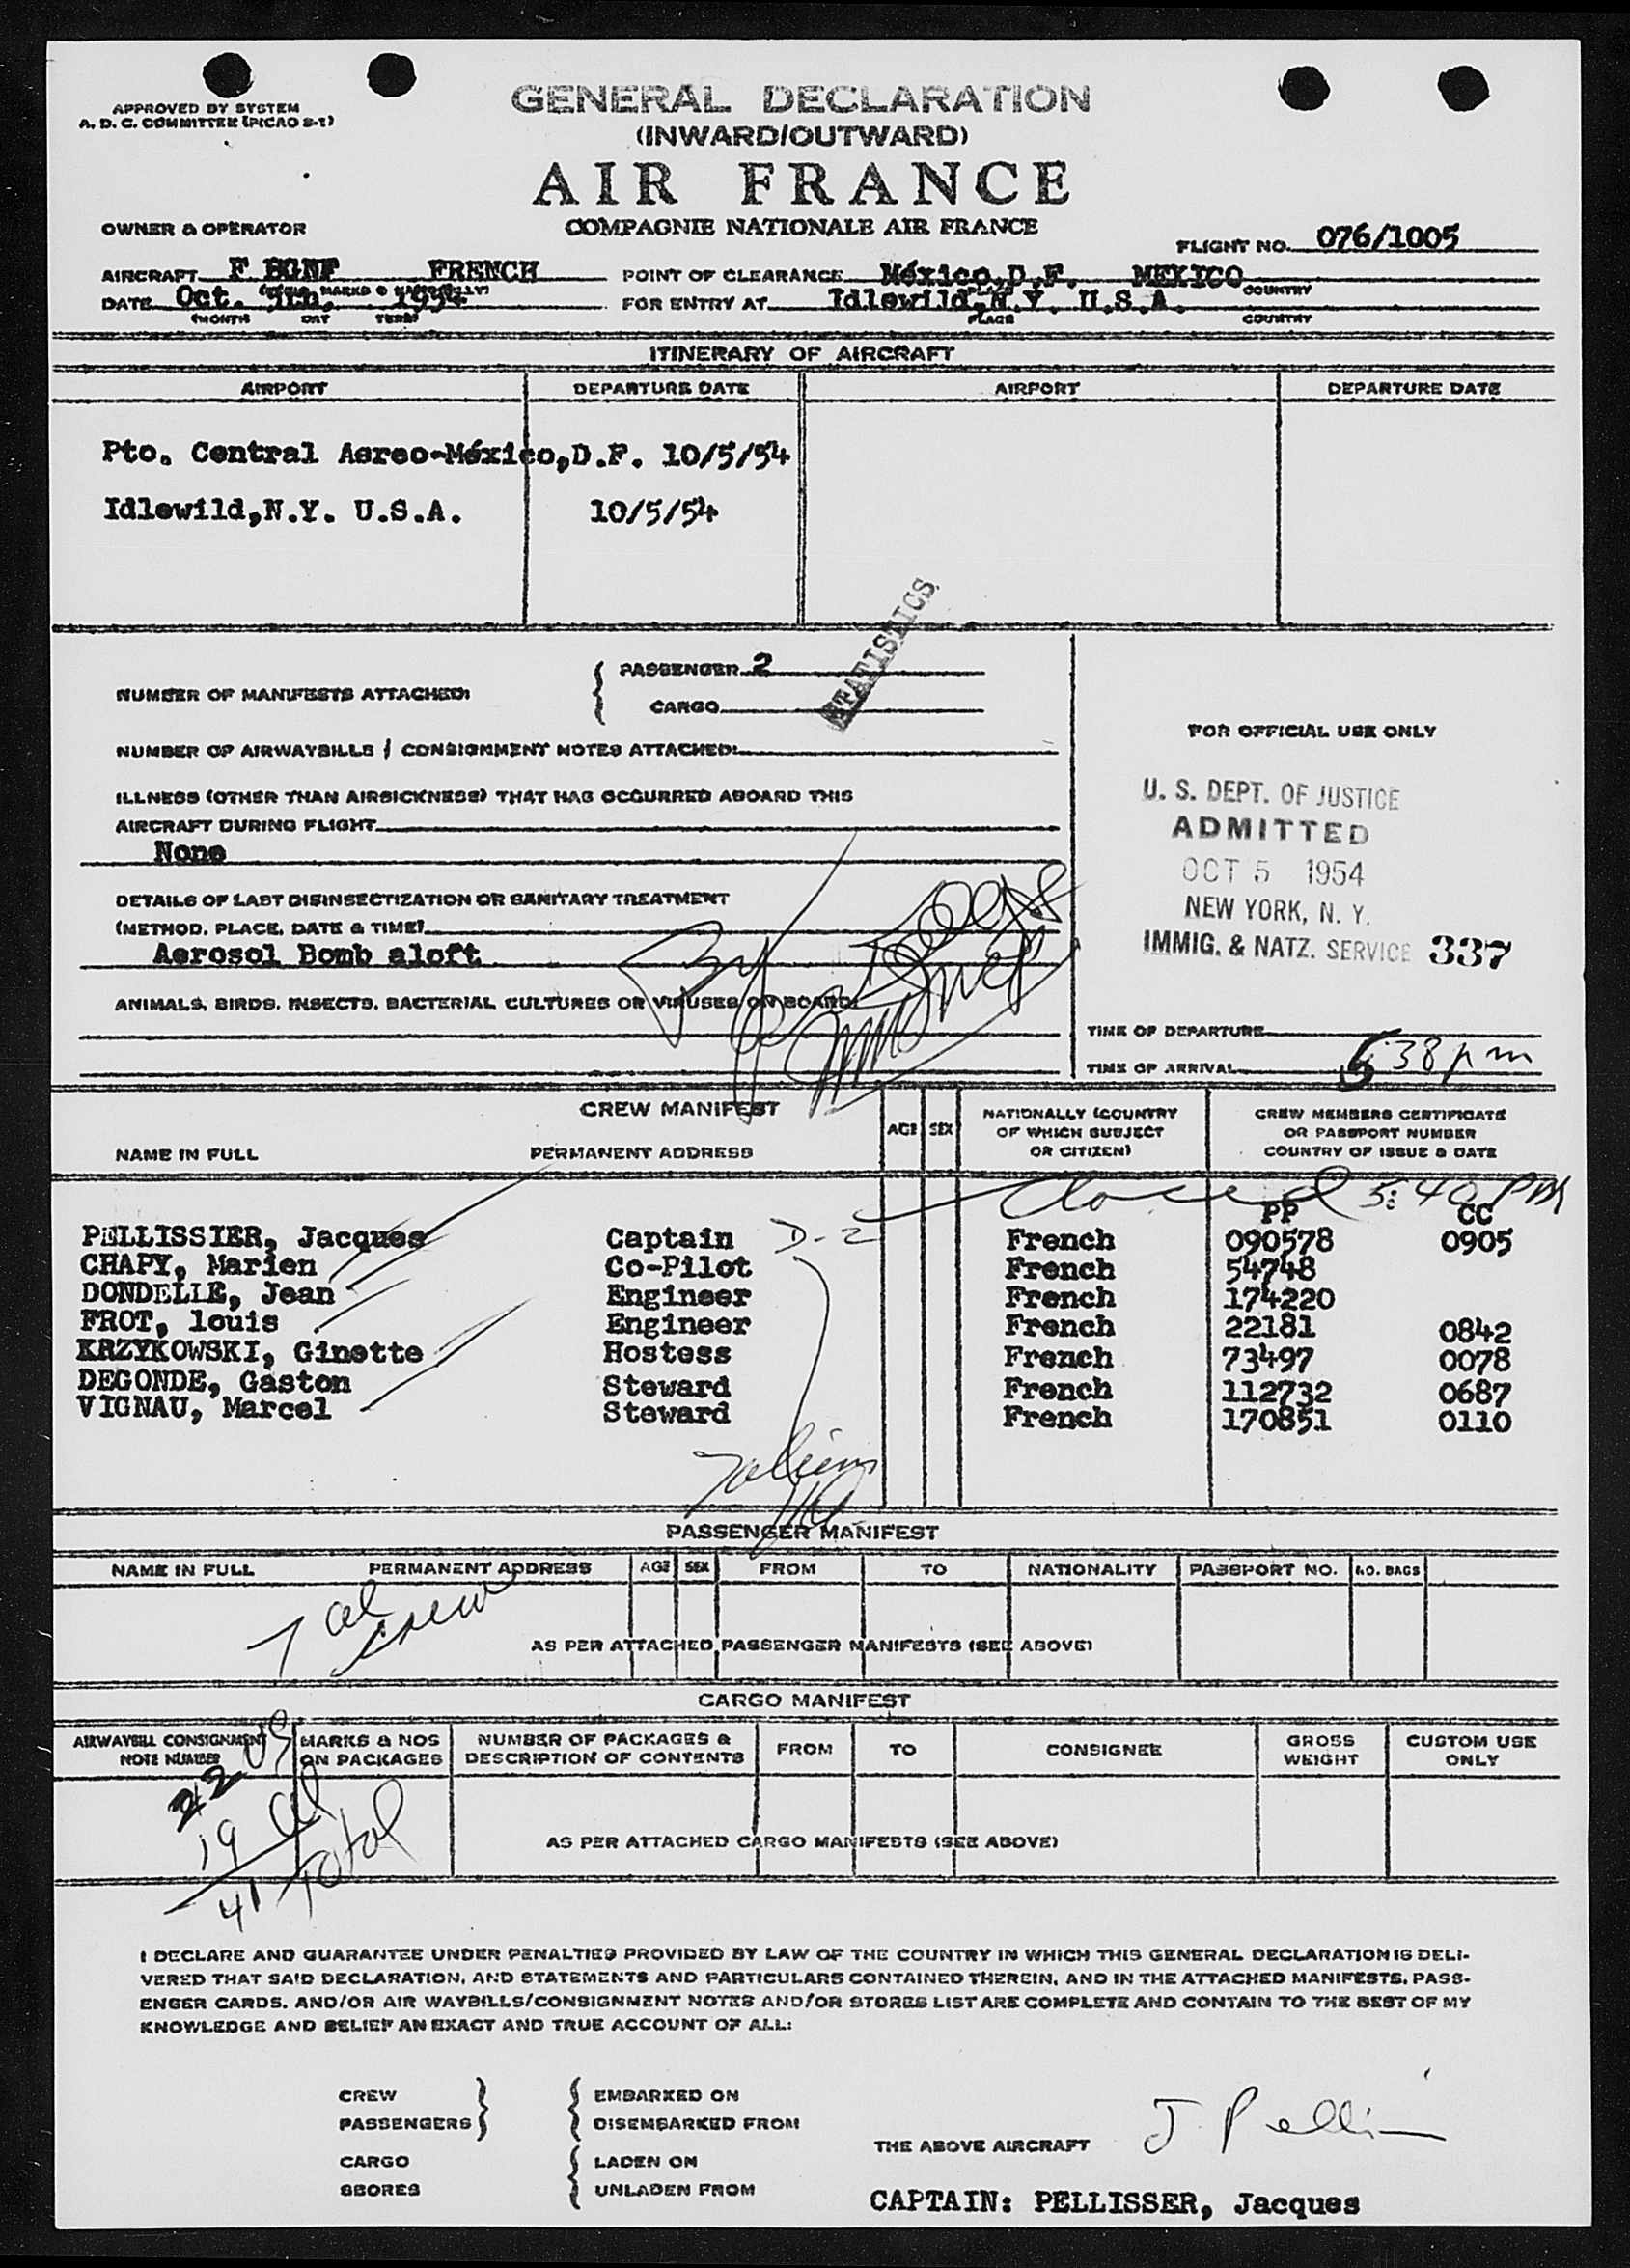 APPROVED BY SYSTEM
A. D. C. COMMITTEE (PICAO S-1)
GENERAL DECLARATION
(INWARD/OUTWARD)
AIR FRANCE
COMPAGNIE NATIONALE AIR FRANCE
OWNER & OPERATOR
FLIGHT NO. 076/1005
AIRCRAFT F BGNF FRENCH POINT OF CLEARANCE México,D.F. MEXICO
PLACE COUNTRY
DATE Oct. 5th, 1954 FOR ENTRY AT Idlewild,N.Y. U.S.A.
(MONTH DAY YEAR) PLACE COUNTRY
ITINERARY OF AIRCRAFT
AIRPORT DEPARTURE DATE AIRPORT DEPARTURE DATE
Pto. Central Aereo-México,D.F. 10/5/54
Idlewild,N.Y. U.S.A. 10/5/54
STATISTICS
NUMBER OF MANIFESTS ATTACHED:
PASSENGER 2
CARGO
NUMBER OF AIRWAYBILLS / CONSIGNMENT NOTES ATTACHED:
ILLNESS (OTHER THAN AIRSICKNESS) THAT HAS OCCURRED ABOARD THIS
AIRCRAFT DURING FLIGHT
None
DETAILS OF LAST DISINSECTIZATION OR SANITARY TREATMENT
(METHOD, PLACE, DATE & TIME)
Aerosol Bomb aloft
ANIMALS, BIRDS, INSECTS, BACTERIAL CULTURES OR VIRUSES ON BOARD:
FOR OFFICIAL USE ONLY
U. S. DEPT. OF JUSTICE
ADMITTED
OCT 5 1954
NEW YORK, N. Y.
IMMIG. & NATZ. SERVICE 337
TIME OF DEPARTURE
TIME OF ARRIVAL 5 38 pm
CREW MANIFEST
NAME IN FULL PERMANENT ADDRESS AGE SEX
NATIONALLY (COUNTRY
OF WHICH SUBJECT
OR CITIZEN)
CREW MEMBERS CERTIFICATE
OR PASSPORT NUMBER
COUNTRY OF ISSUE & DATE
closed 5:40 PM
PP CC
PELLISSIER, Jacques Captain D-2 French 090578 0905
CHAPY, Marien Co-Pilot French 54748
DONDELLE, Jean Engineer French 174220
FROT, louis Engineer French 22181 0842
KRZYKOWSKI, Ginette Hostess French 73497 0078
DEGONDE, Gaston Steward French 112732 0687
VIGNAU, Marcel Steward French 170851 0110
PASSENGER MANIFEST
NAME IN FULL PERMANENT ADDRESS AGE SEX FROM TO NATIONALITY PASSPORT NO. NO. BAGS
7 al
crew
AS PER ATTACHED PASSENGER MANIFESTS (SEE ABOVE)
CARGO MANIFEST
AIRWAYBILL CONSIGNMENT
NOTE NUMBER
MARKS & NOS
ON PACKAGES
NUMBER OF PACKAGES &
DESCRIPTION OF CONTENTS
FROM TO CONSIGNEE
GROSS
WEIGHT
CUSTOM USE
ONLY
22 US
19 al
41 Total
AS PER ATTACHED CARGO MANIFESTS (SEE ABOVE)
I DECLARE AND GUARANTEE UNDER PENALTIES PROVIDED BY LAW OF THE COUNTRY IN WHICH THIS GENERAL DECLARATION IS DELI-
VERED THAT SAID DECLARATION, AND STATEMENTS AND PARTICULARS CONTAINED THEREIN, AND IN THE ATTACHED MANIFESTS, PASS-
ENGER CARDS, AND/OR AIR WAYBILLS/CONSIGNMENT NOTES AND/OR STORES LIST ARE COMPLETE AND CONTAIN TO THE BEST OF MY
KNOWLEDGE AND BELIEF AN EXACT AND TRUE ACCOUNT OF ALL:
CREW EMBARKED ON
PASSENGERS DISEMBARKED FROM
THE ABOVE AIRCRAFT J. Pelli
CARGO LADEN ON
SBORES UNLADEN FROM
CAPTAIN: PELLISSER, Jacques